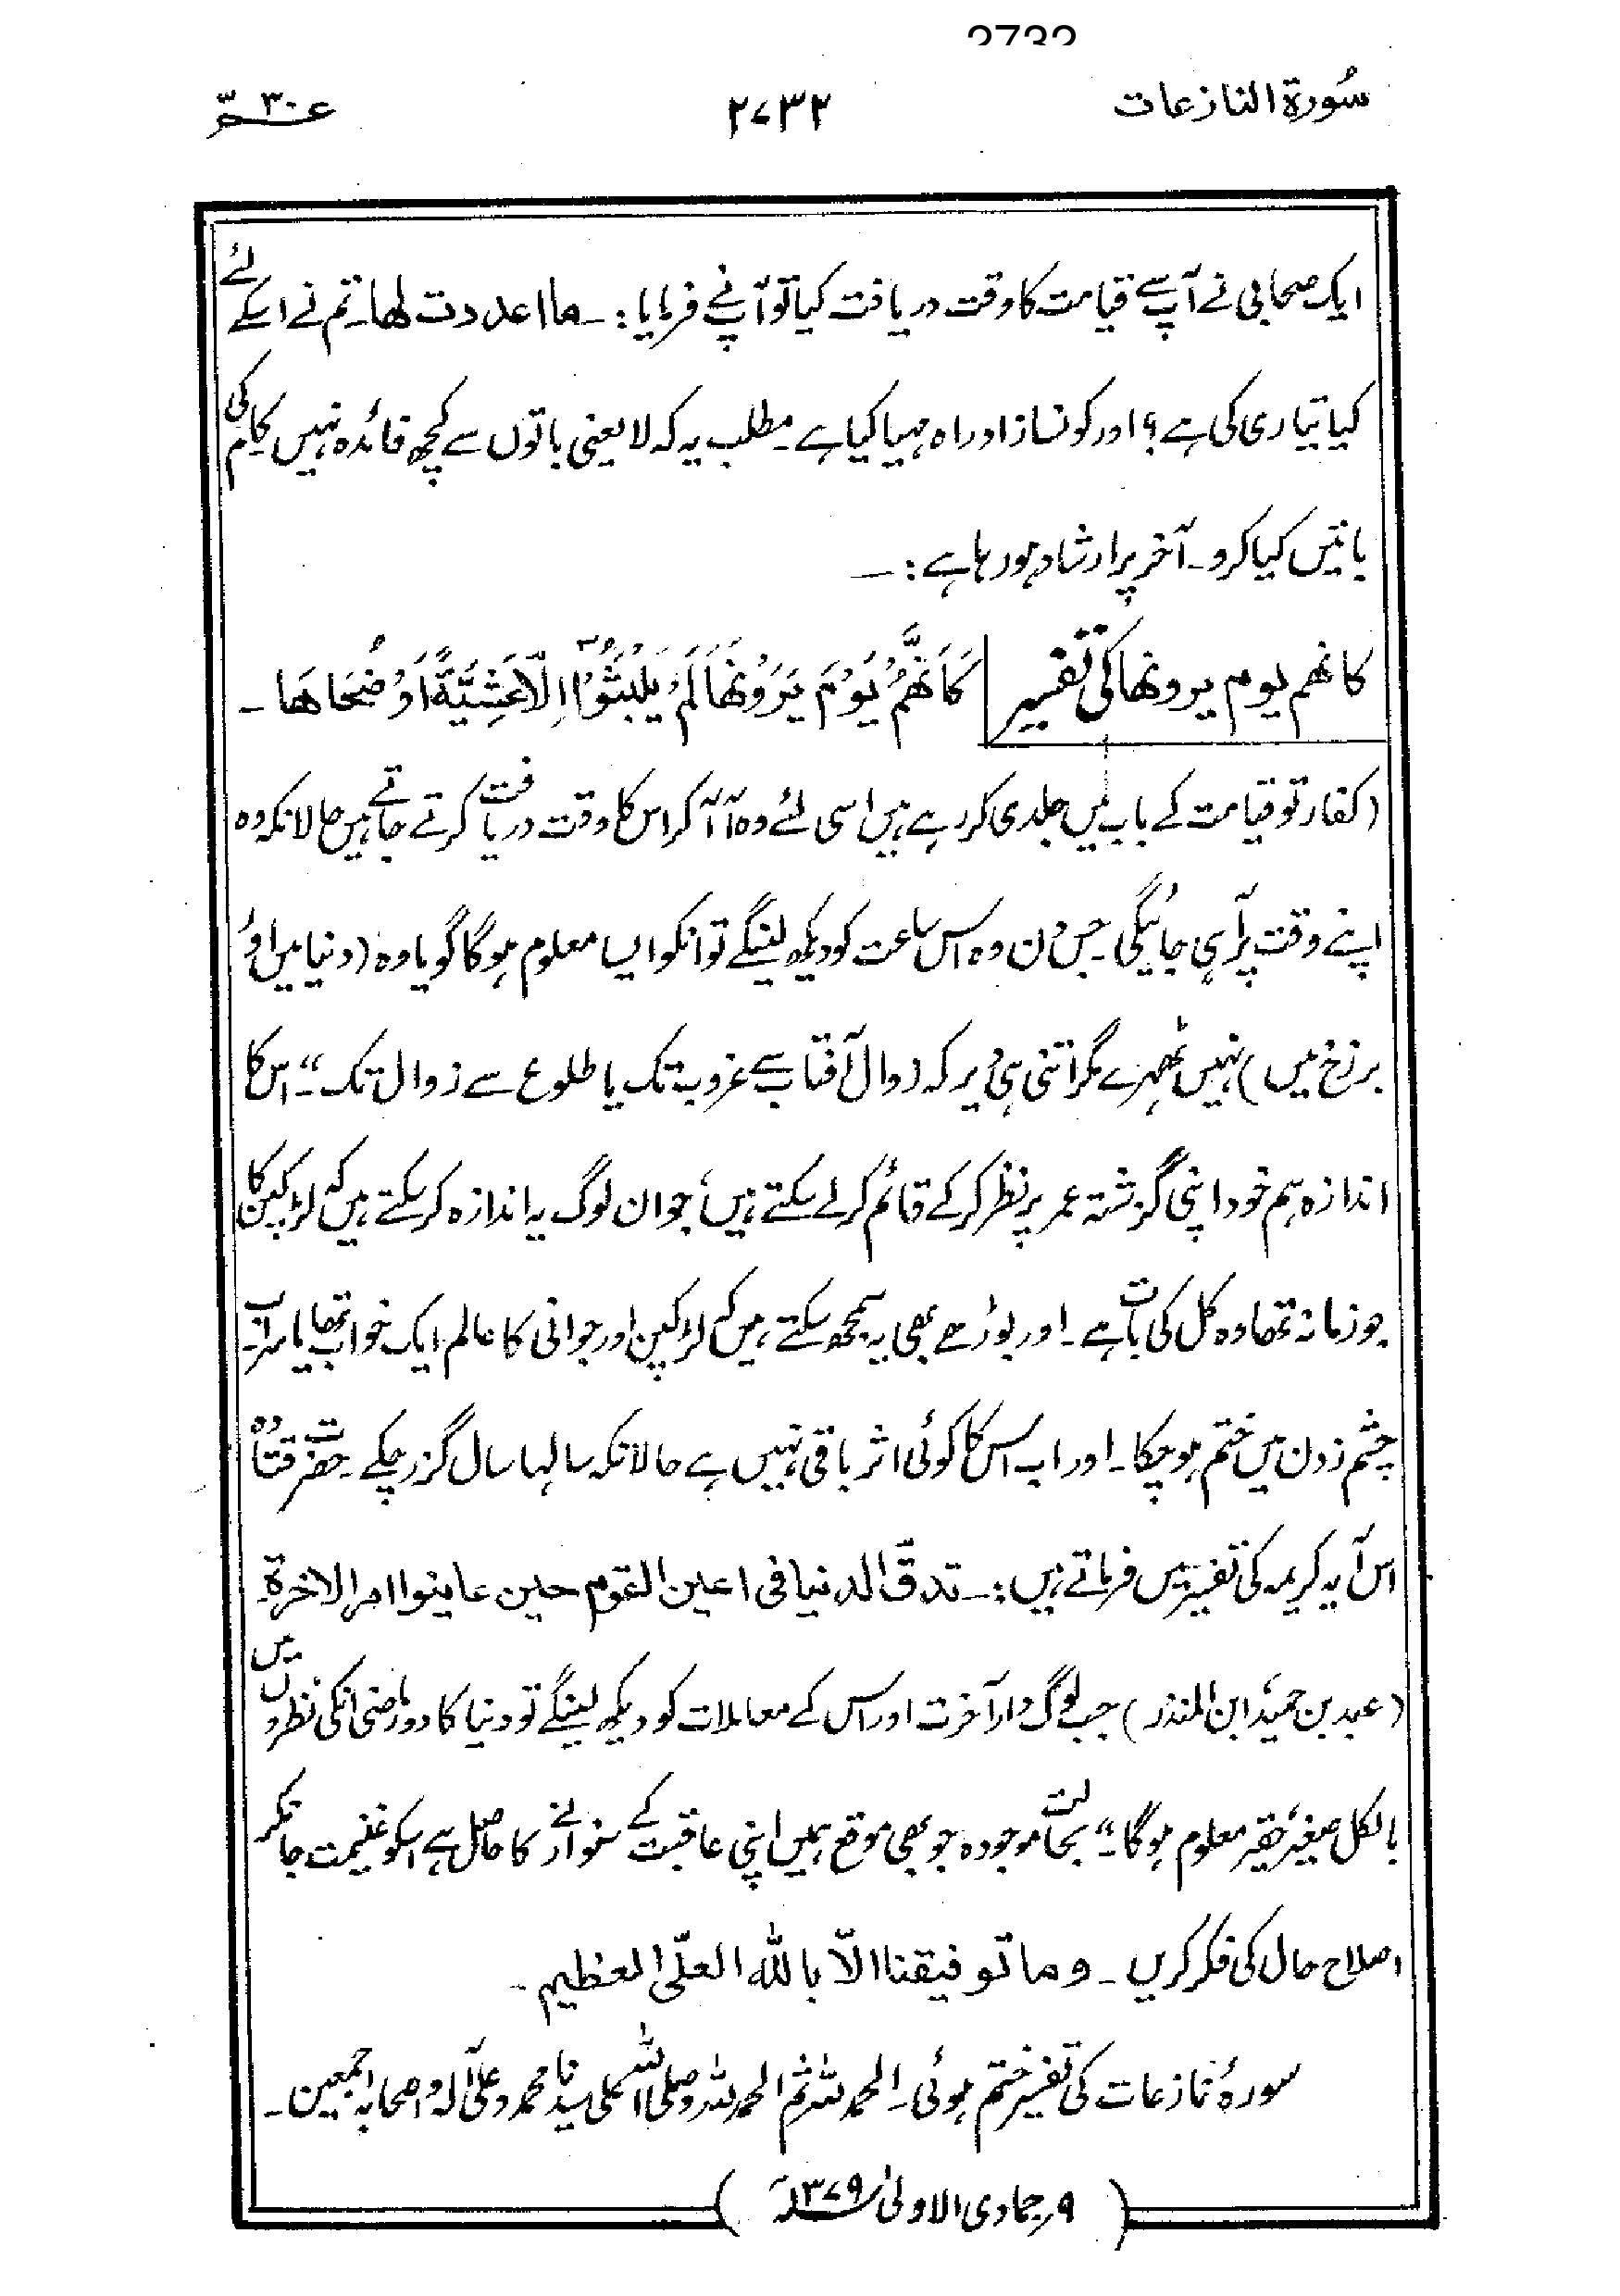 2732
سُورۃ النازعات ۲۷۳۲ عمّ ۳۰
ایک صحابی نے آپ سے قیامت کا وقت دریافت کیا تو آپ نے فرمایا :۔ ما اعددت لھا۔ تم نے اسکے لئے
کیا تیاری کی ہے؟ اور کونسا زاد راہ مہیا کیا ہے۔ مطلب یہ کہ لایعنی باتوں سے کچھ فائدہ نہیں کام کی
باتیں کیا کرو۔ آخر پر ارشاد ہورہا ہے :۔
کانھم یوم یرونھا کی تفسیر کَاَنَّھُمْ یَوْمَ یَرَوْنَھَا لَمْ یَلْبَثُوْٓا اِلَّا عَشِیَّةً اَوْ ضُحَاھَا۔
(کفار تو قیامت کے باب میں جلدی کررہے ہیں اسی لئے وہ آ آ کر اس کا وقت دریافت کرتے جاتے ہیں حالانکہ وہ
اپنے وقت پر آہی جائیگی۔ جس دن وہ اس ساعت کو دیکھ لینگے تو انکو ایسا معلوم ہوگا گویا وہ (دنیا میں اور
برزخ میں) نہیں ٹھہرے مگر اتنی ہی دیر کہ زوال آفتاب سے غروب تک یا طلوع سے زوال تک"۔ اس کا
اندازہ ہم خود اپنی گزشتہ عمر پر نظر کرکے قائم کرلے سکتے ہیں، جوان لوگ یہ اندازہ کرسکتے ہیں کہ لڑکپن کا
جو زمانہ تھا وہ کل کی بات ہے۔ اور بوڑھے بھی یہ سمجھ سکتے ہیں کہ لڑکپن اور جوانی کا عالم ایک خواب تھا یا سراب۔
چشم زدن میں ختم ہوچکا۔ اور اب اس کا کوئی اثر باقی نہیں ہے حالانکہ سالہا سال گزر چکے۔ حضرت قتادہ
اس آیہ کریمہ کی تفسیر میں فرماتے ہیں :۔ تدقّ الدنیا فی اعین القوم حین عاینوا امر الاخرۃ
(عبد بن حمید، ابن المنذر) جب لوگ دار آخرت اور اس کے معاملات کو دیکھ لینگے تو دنیا کا دور ماضی انکی نظروں میں
بالکل صغیر، حقیر معلوم ہوگا"۔ بحالت موجودہ جو بھی موقع ہمیں اپنی عاقبت کے سنوارنے کا حاصل ہے اسکو غنیمت جانکر
اصلاح حال کی فکر کریں۔ وما توفیقنا الّا باللہ العلّی العظیم۔
سورۂ نازعات کی تفسیر ختم ہوئی۔ الحمدللہ ثم الحمدللہ وصلی اللہ علی سیدنا محمد وعلیٰ آلہ واصحابہ اجمعین۔
(۹؍جمادی الاولیٰ ۱۳۷۹ھ)